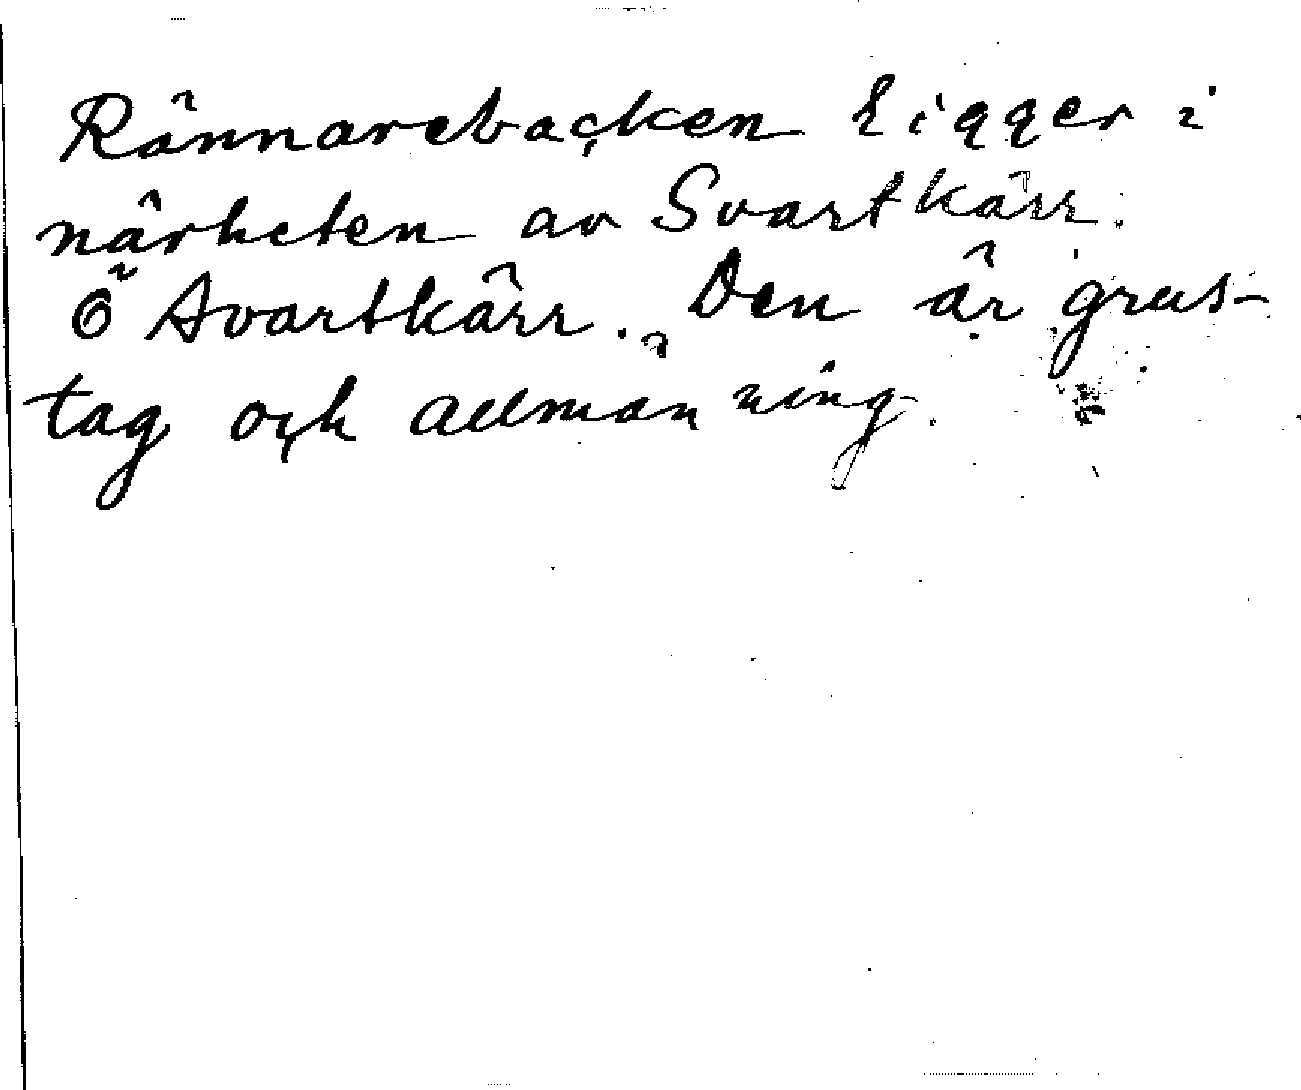 Rännarebacken ligger i
närheten av Svartkärr.
Ö Svartkärr. Den är grus-
tag och allmänning.